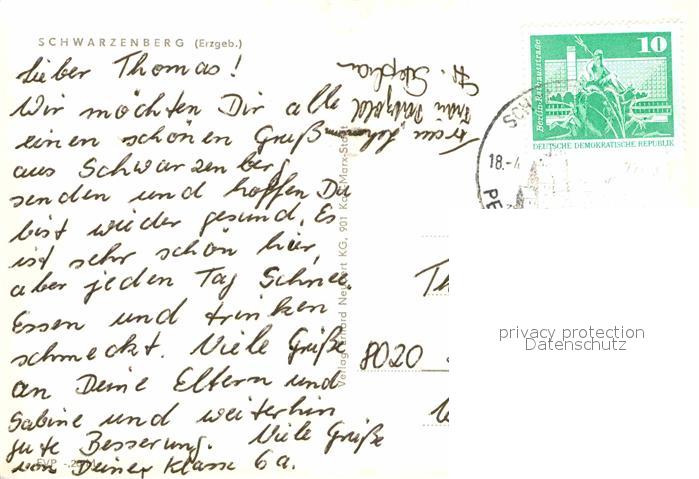 SCHWARZENBERG (Erzgeb.)
Lieber Thomas!
Wir möchten Dir alle
einen schönen Gruß
aus Schwarzenberg
senden und hoffen Du
bist wieder gesund. Es
ist sehr schön hier,
aber jeden Tag Schnee.
Essen und trinken
schmeckt. Viele Grüße
an Deine Eltern und
Sabine und weiterhin
gute Besserung. Viele Grüße
von Deiner Klasse 6a.
Frau
Frau
H. Stephan
Verlag Erhard Neubert KG, 901 Karl-Marx-Stadt
EVP
10
Berlin-Rathausstraße
DEUTSCHE DEMOKRATISCHE REPUBLIK
SCH
18.-4
PE
Th
8020
privacy protection
Datenschutz